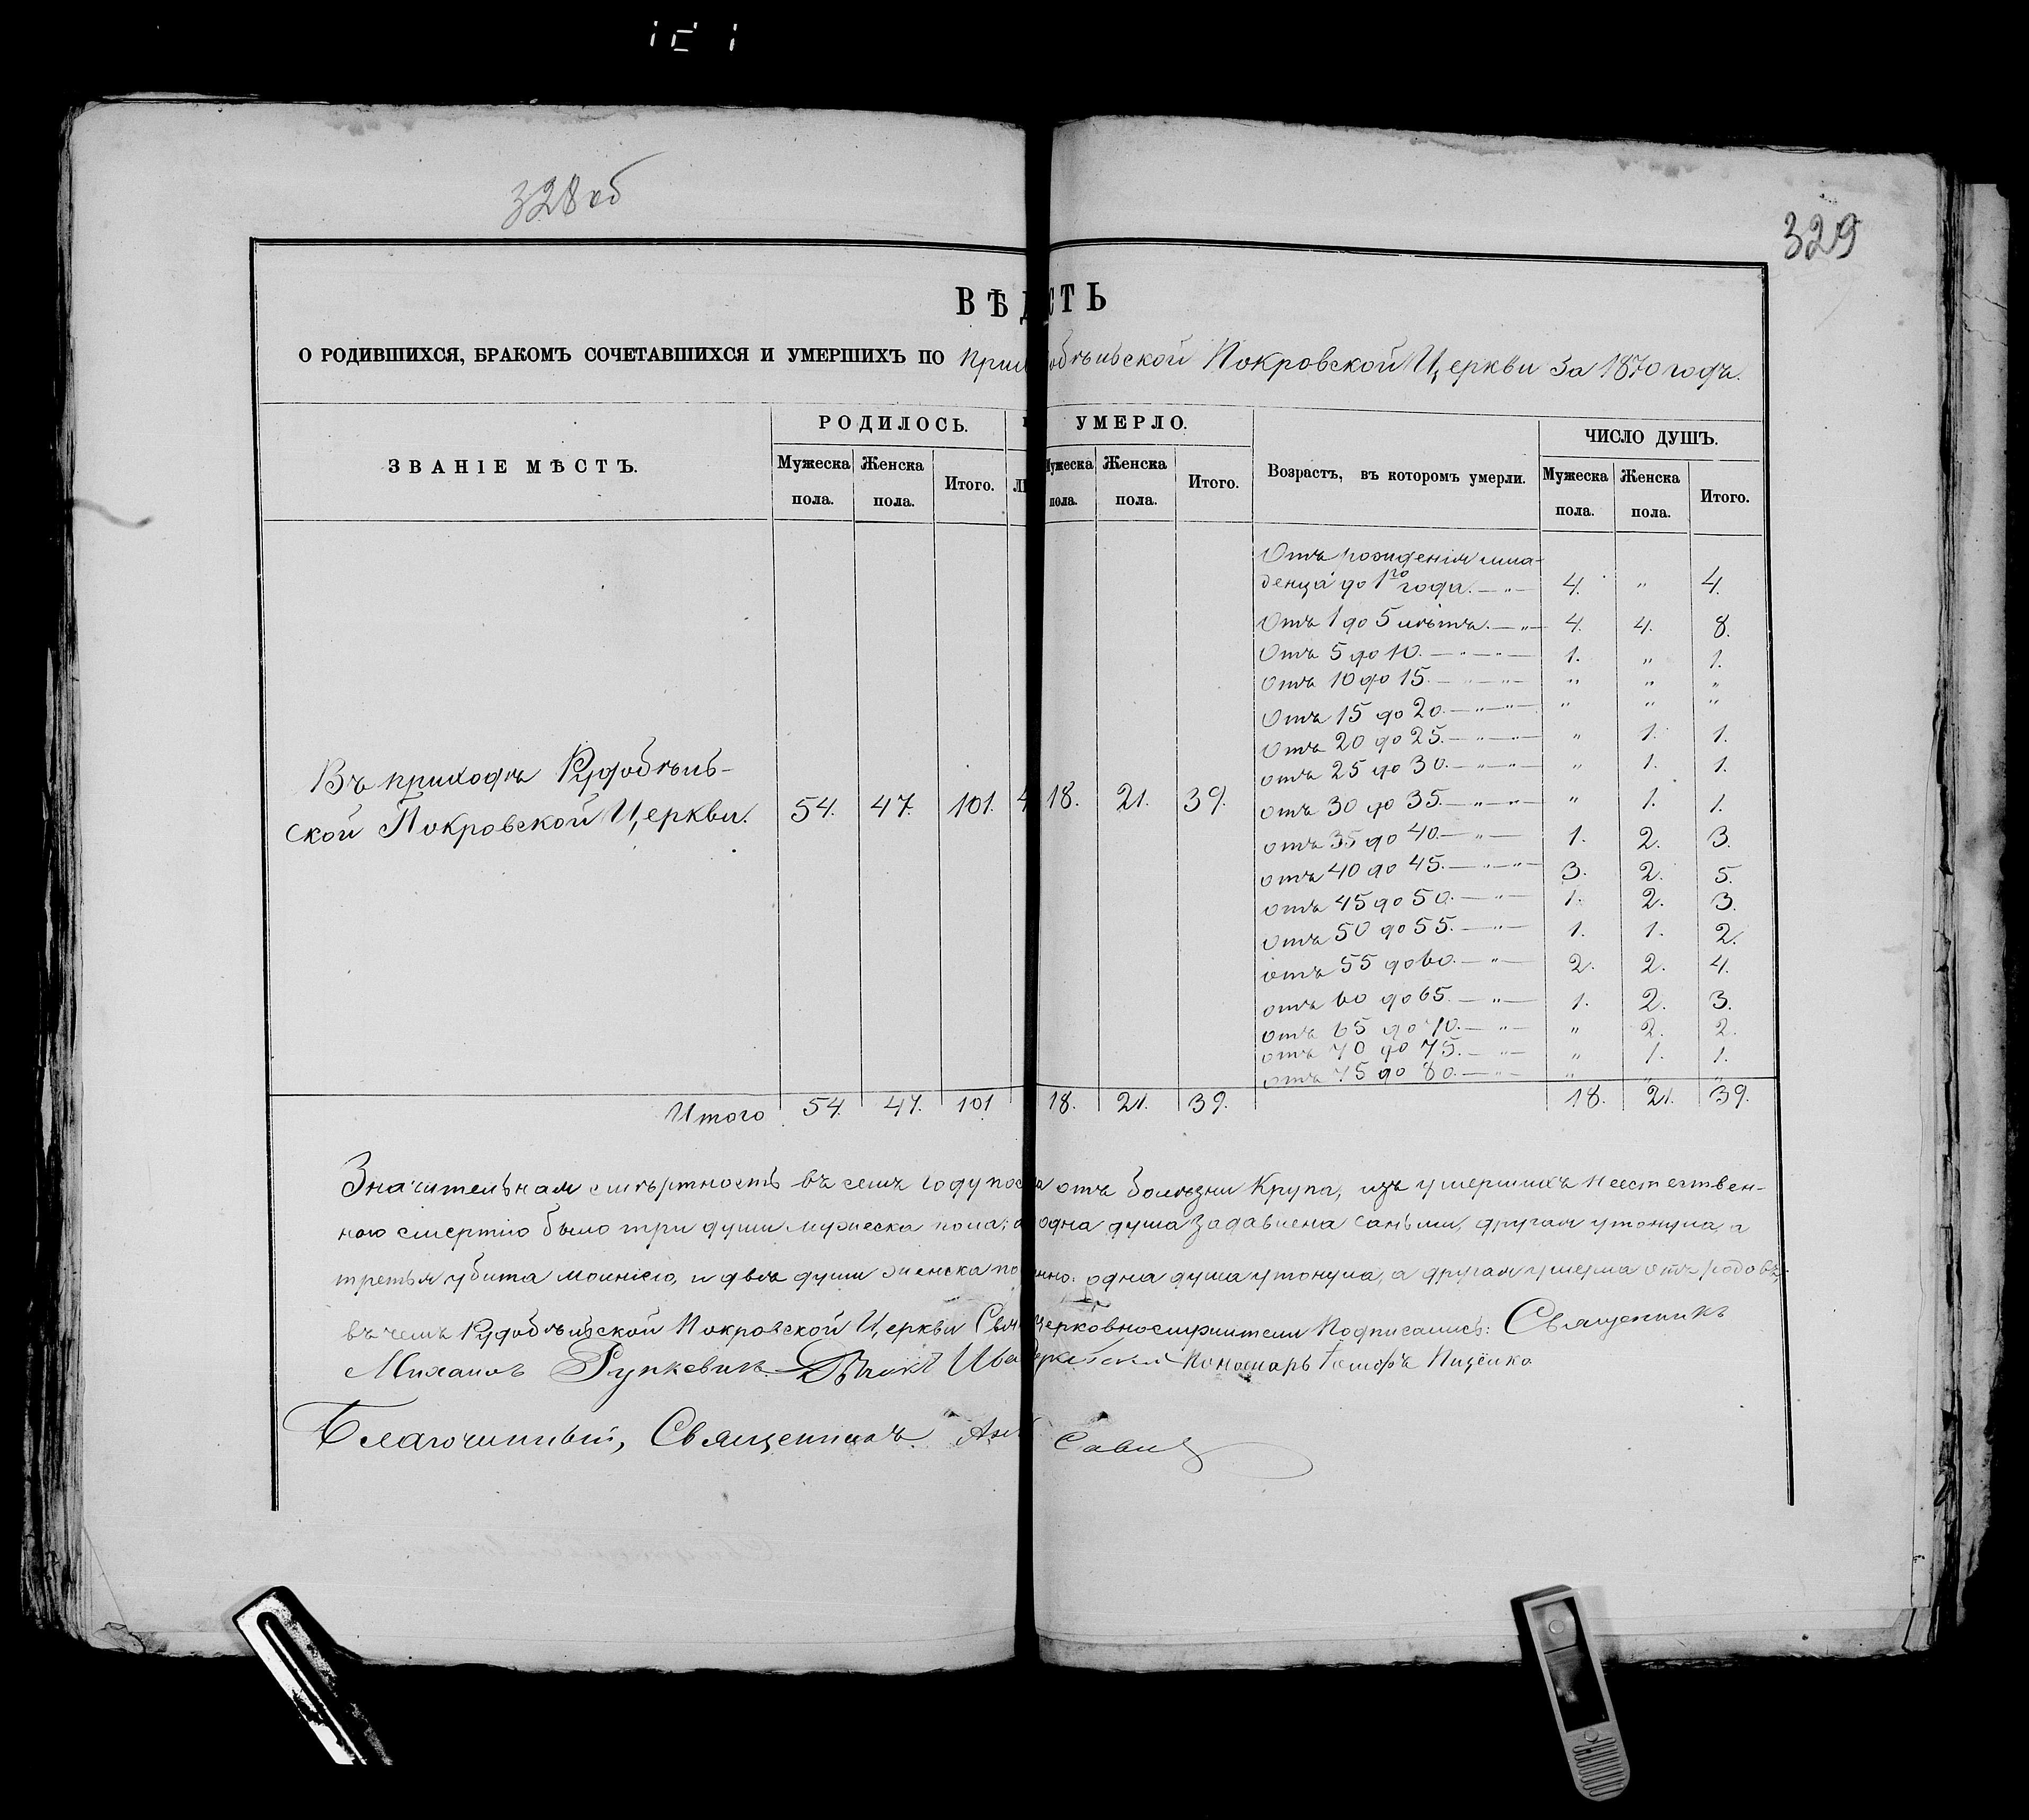 328 об
329
ВѢД СТЬ
О РОДИВШИХСЯ, БРАКОМЪ СОЧЕТАВШИХСЯ И УМЕРШИХЪ ПО При обѣльской Покровской Церкви за 1870 годъ.
ЗВАНІЕ МѢСТЪ. РОДИЛОСЬ. УМЕРЛО. Возрастъ, въ которомъ умерли. ЧИСЛО ДУШЪ.
Мужеска пола. Женска пола. Итого. Мужеска пола. Женска пола. Итого. Мужеска пола. Женска пола. Итого.
Отъ рожденія мла-
денца до 1го года. — „ — 4. „ 4.
Отъ 1 до 5 лѣтъ. — „ — 4. 4. 8.
Отъ 5 до 10. — „ — „ — 1. „ 1.
Отъ 10 до 15. — „ — „ — „ „ „
Отъ 15 до 20. — „ — „ — „ „ „
Отъ 20 до 25. — „ — „ — „ 1. 1.
отъ 25 до 30. — „ — „ — „ 1. 1.
Въ приходѣ Рудобѣль-
ской Покровской Церкви. 54. 47. 101. 4 18. 21. 39.
отъ 30 до 35. — „ — „ — „ 1. 1.
отъ 35 до 40. — „ — 1. 2. 3.
отъ 40 до 45. — „ — „ — 3. 2. 5.
отъ 45 до 50. — „ — 1. 2. 3.
отъ 50 до 55. — „ — 1. 1. 2.
отъ 55 до 60. — „ — 2. 2. 4.
отъ 60 до 65. — „ — 1. 2. 3.
отъ 65 до 70. — „ — „ 2. 2.
отъ 70 до 75. — „ — „ 1. 1.
отъ 75 до 80. — „ — „ „ „
Итого 54. 47. 101 18. 21. 39. 18. 21. 39.
Значительная смѣртность въ семъ году отъ болѣзни Крупа, изъ умершихъ неестествен-
ною смертію было три души мужеска пола; одна душа задавлена саньми, другая утонула, а
третья убита молніею, и двѣ души женска одна душа утонула, а другая умерла отъ родовъ;
въ чемъ Рудобѣльской Покровской Церкви церковнослужители Подписались: Священникъ
Михаилъ Рункевичъ. Дьякъ Пономарь Іосифъ Пицейко
Благочинный, Священникъ Савич